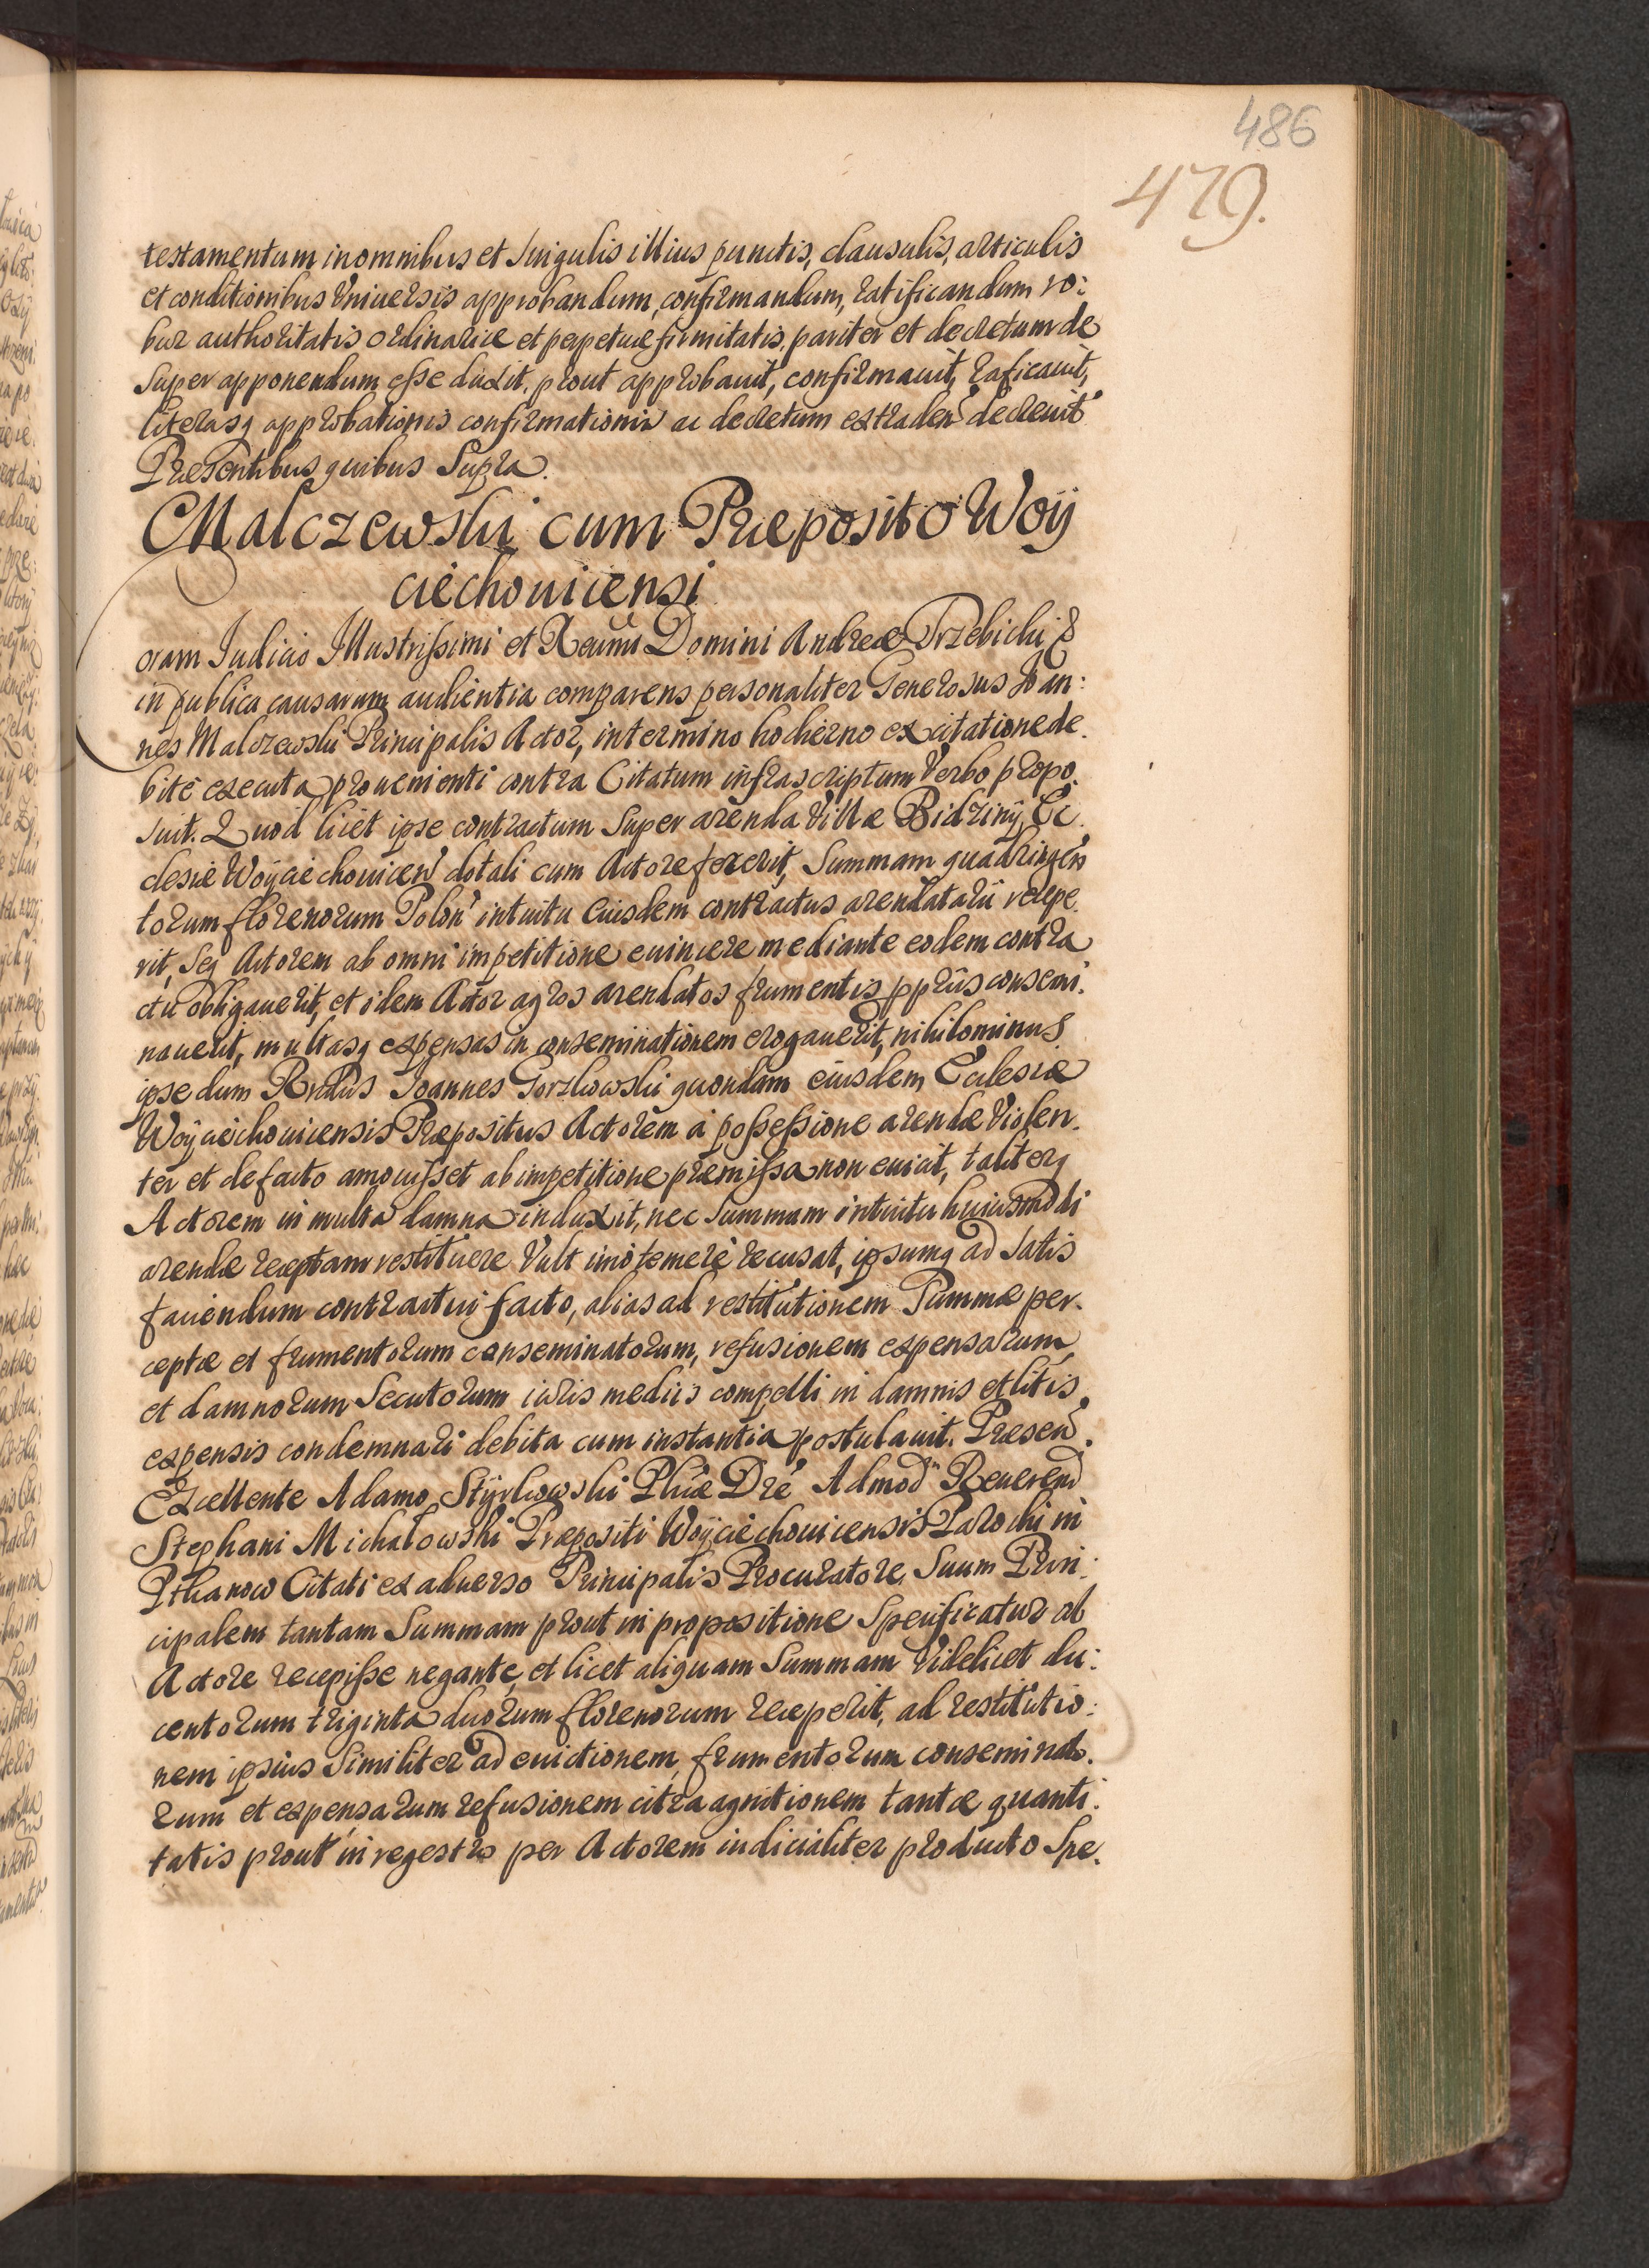 486
479.
testamentum in omnibus et singulis illius punctis, clausulis, articulis
et conditionibus Vniuersis approbandum, confirmandum, ratificandum ro:
bur authoritatis ordinariæ et perpetuæ firmitatis, pariter et decretum de
super apponendum esse duxit, prout approbauit, confirmauit, raficauit,
literasq approbationis confirmationis ac decretum extraden decreuit
Præsentibus quibus Supra.
Malczewski cum Præposito Woÿ
ciechouicensi
Coram Iudicio Illustrissimi et Reumi Domini Andreæ Trzebicki &
in publica causarum audientia comparens personaliter Generosus Ioan:
nes Malczewski Principalis Actor, in termino hodierno ex citatione de
bitè executa proueniènti contra Citatum infrascriptum Verbo propo.
suit. Quod licèt ipse contractum super arenda Villæ Bidzinÿ Ec
clesiæ Woÿciechouicen dotali cum Actore fecerit, Summam quadringen
torum florenorum Polon intuitu eiusdem contractus arendatarii recepe.
rit, seq Actorem ab omni impetitione euincere mediante eodem contra
ctu obligauerit, et idem Actor agros arendatos frumentis ppriis consemi.
nauerit, multasq expensas in conseminationem erogauerit, nihilominus
ipse dum Rndus Ioannes Gorzkowski quondam eiusdem Ecclesiæ
Woÿciechouicensis Præpositus Actorem à possessione arendæ Violen.
ter et de facto amouisset ab impetitione præmissa non euicit, taliterq
Actorem in multa damna induxit, nec summam intuitu huiusmodi
arendæ receptam restituere Vult imò temerè recusat, ipsumq ad satis
faciendum contractui facto, alias ad restitutionem Summæ per.
ceptæ et frumentorum conseminatorum, refusionem expensarum
et damnorum secutorum iuris mediis compelli in damnis et litis
expensis condemnari debita cum instantia postulauit. Præsen
Excellente Adamo Styrkowski Phiæ Dre Admod Reuerend
Stephani Michałowski Præpositi Woÿciechouicensis Parochi in
Pthanow Citati ex aduerso Principalis Procuratore, Suum Prin:
cipalem tantam Summam prout in propositione Specificatur ab
Actore recepisse negante, et licet aliquam Summam Videlicet du:
centorum triginta duorum florenorum receperit, ad restitutio:
nem ipsius similiter ad euictionem, frumentorum conseminato.
rum et expensarum refusionem citra agnitionem tantæ quanti.
tatis prout in regestro per Actorem iudicialiter producto Spe.